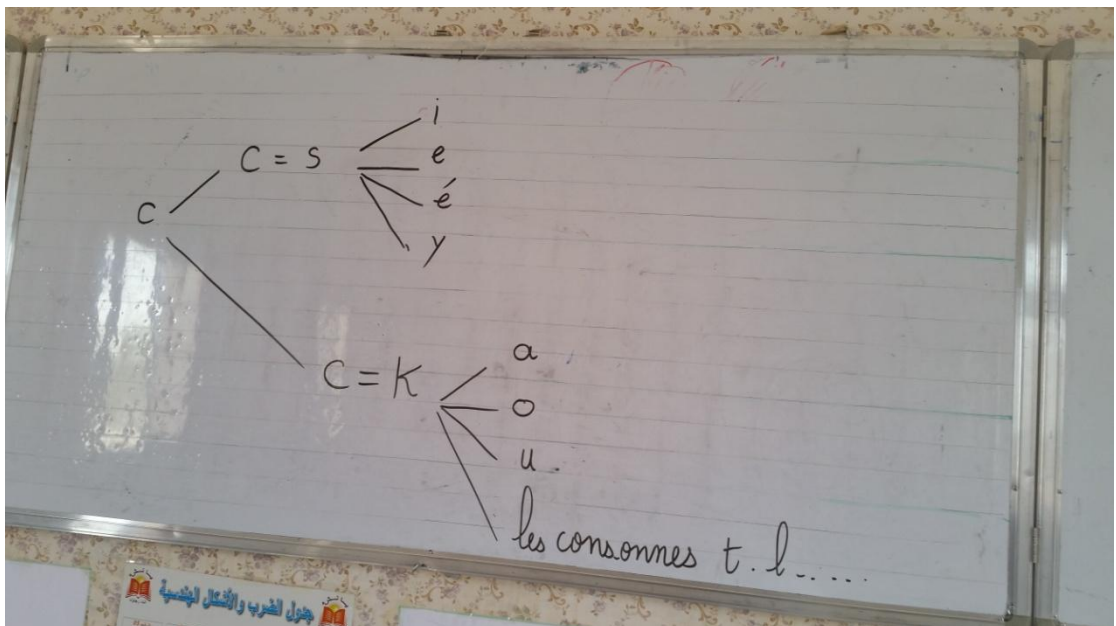 i
C = S
e
é
C
y
a
C = K
o
u
les consonnes t. l......
جدول الضرب والأشكال الهندسية